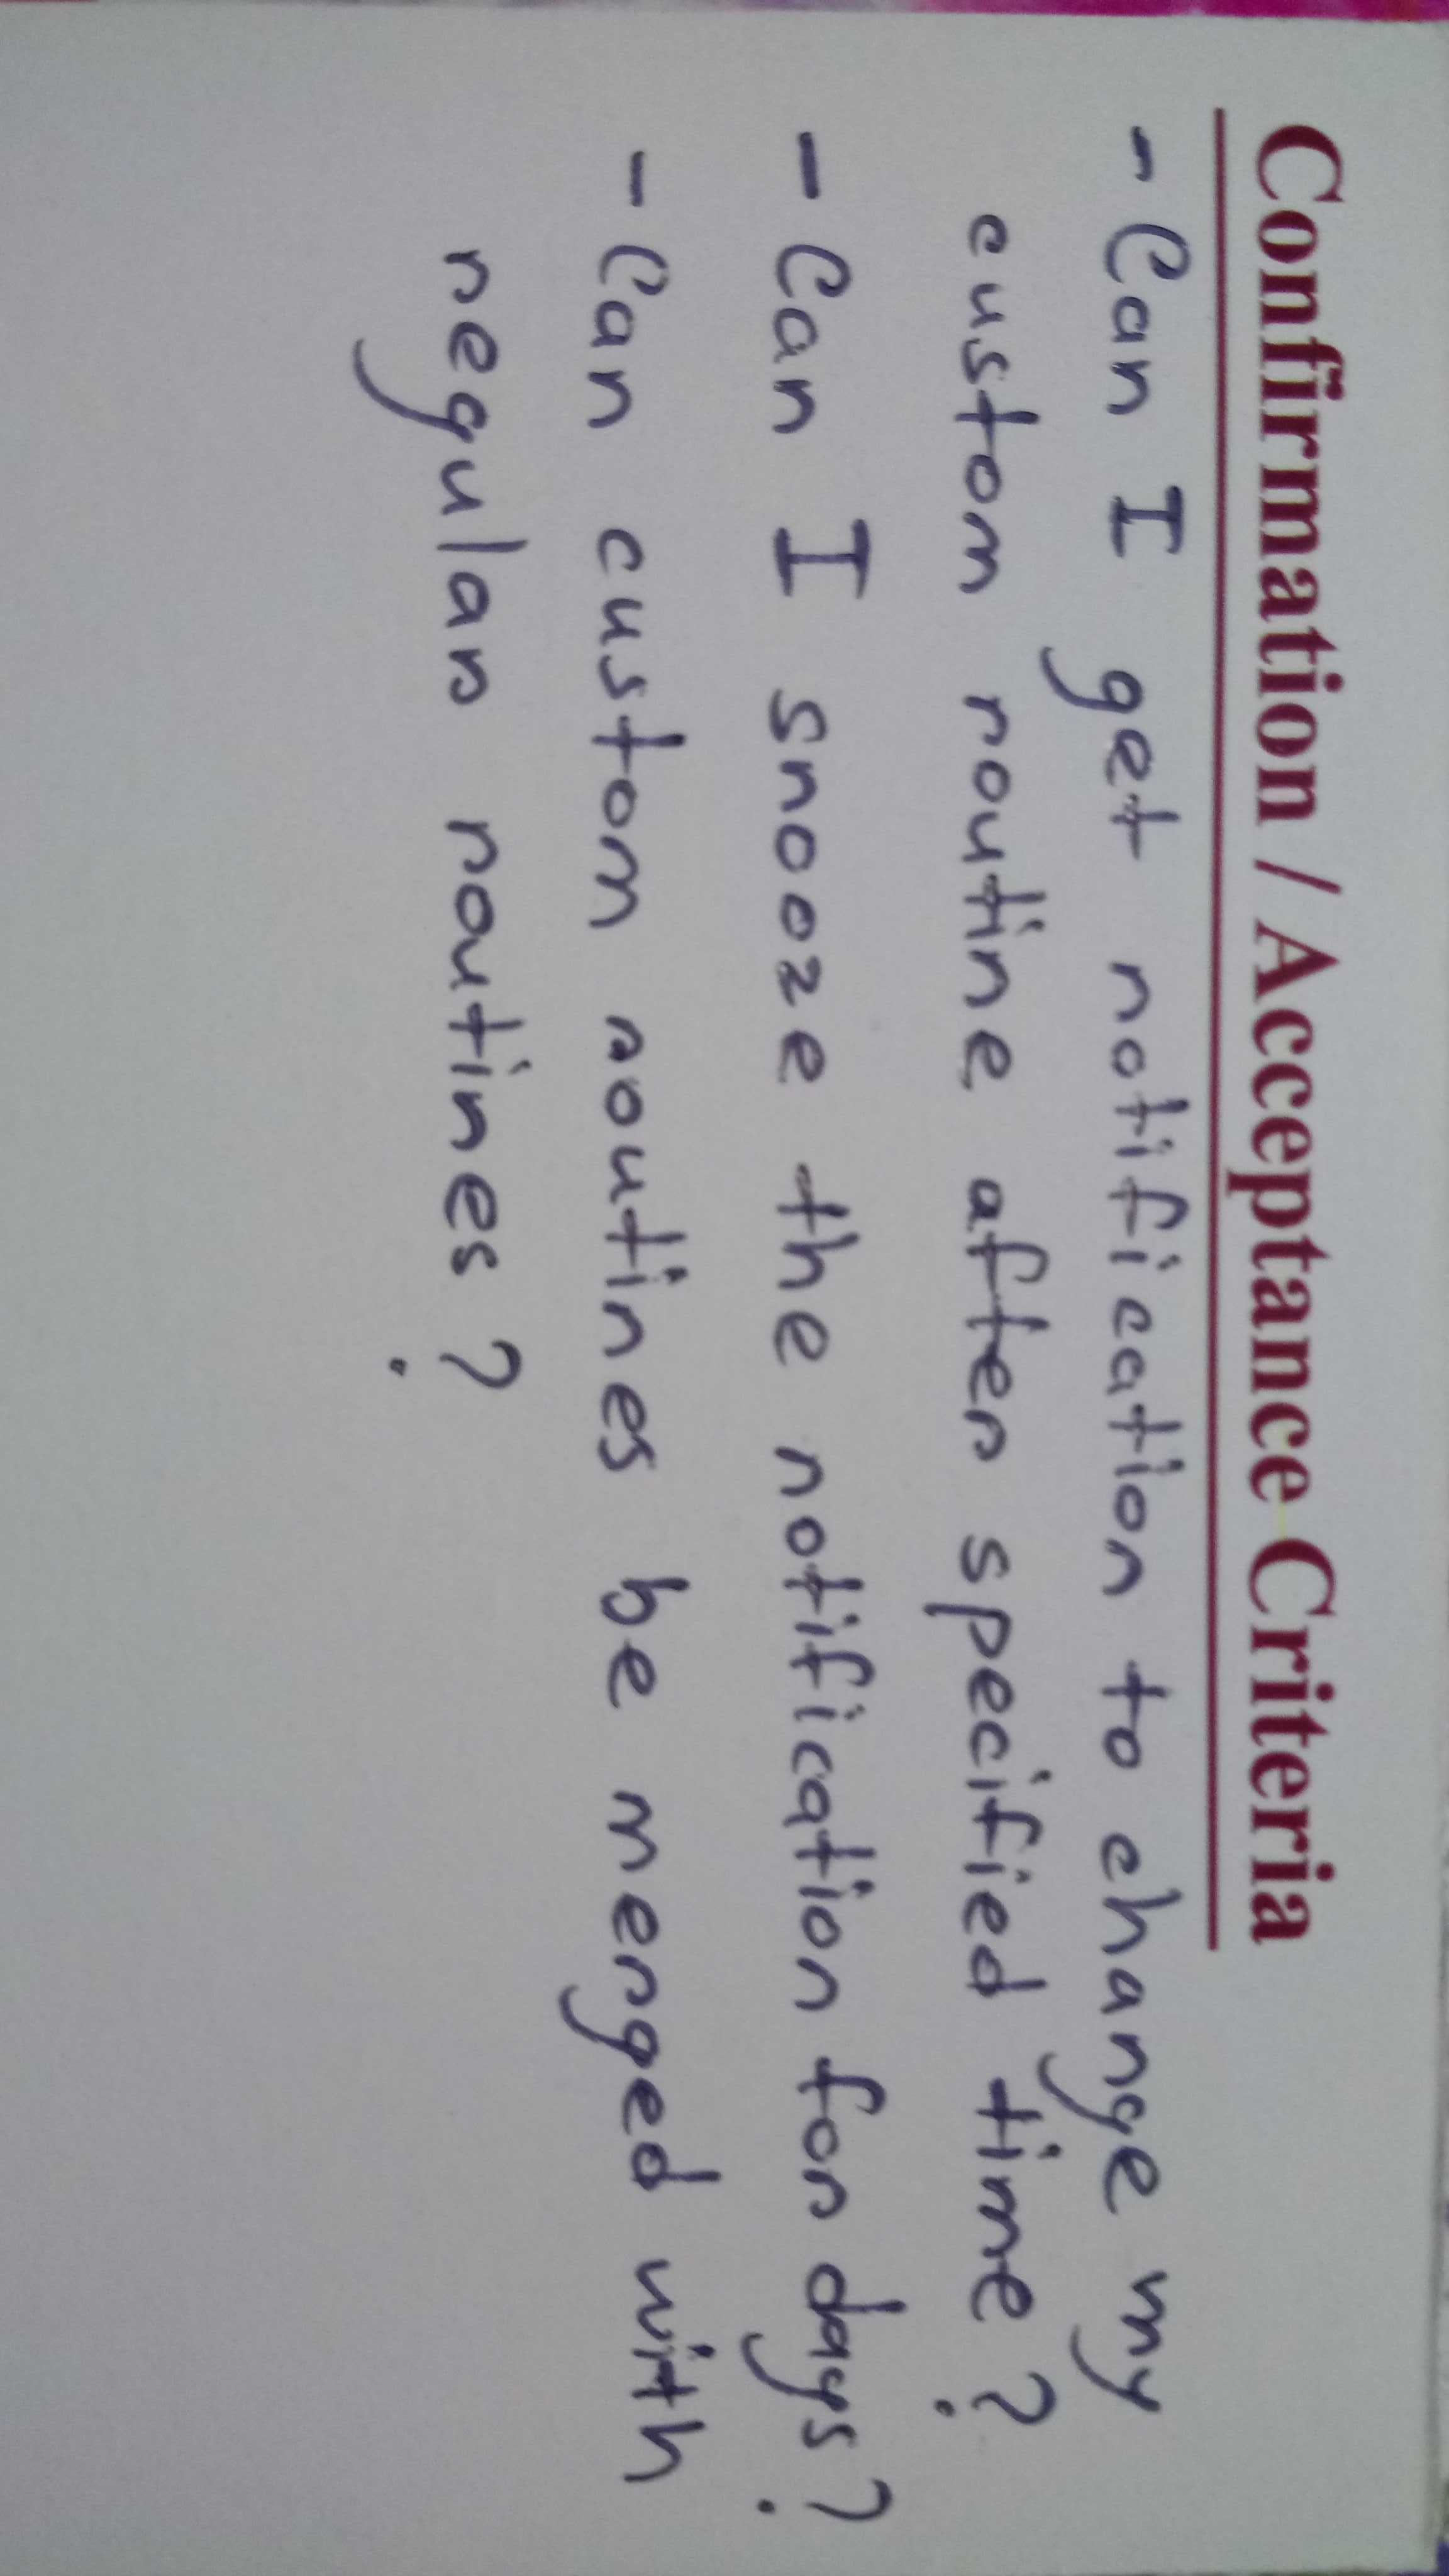 Confirmation / Acceptance Criteria
- Can I get notification to change my
custom routine after specified time?
- Can I snooze the notification for days?
- Can custom routines be merged with
regular routines?